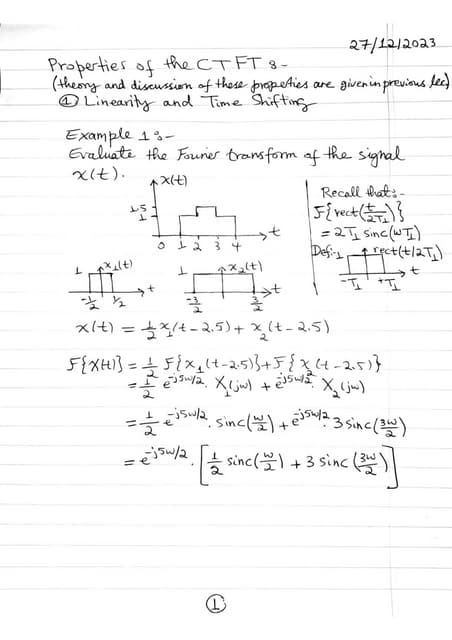 27/12/2023
Properties of the CTFT :-
(theory and discussion of these properties are given in previous lec)
① Linearity and Time Shifting
Example 1 :-
Evaluate the Fourier transform of the signal
x(t).
x(t)
1.5
1
0 1 2 3 4 t
Recall that:-
F{rect(t/2T₁)}
= 2T₁ sinc(ωT₁)
Def:- 1 rect(t/2T₁)
-T₁ +T₁ t
1 x₁(t)
-1/2 1/2 t
1 x₂(t)
-3/2 3/2 t
x(t) = 1/2 x₁(t - 2.5) + x₂(t - 2.5)
F{x(t)} = 1/2 F{x₁(t-2.5)} + F{x₂(t-2.5)}
= 1/2 e^-j5ω/2 . X₁(jω) + e^-j5ω/2 . X₂(jω)
= 1/2 e^-j5ω/2 . sinc(ω/2) + e^-j5ω/2 . 3 sinc(3ω/2)
= e^-j5ω/2 . [1/2 sinc(ω/2) + 3 sinc(3ω/2)]
①